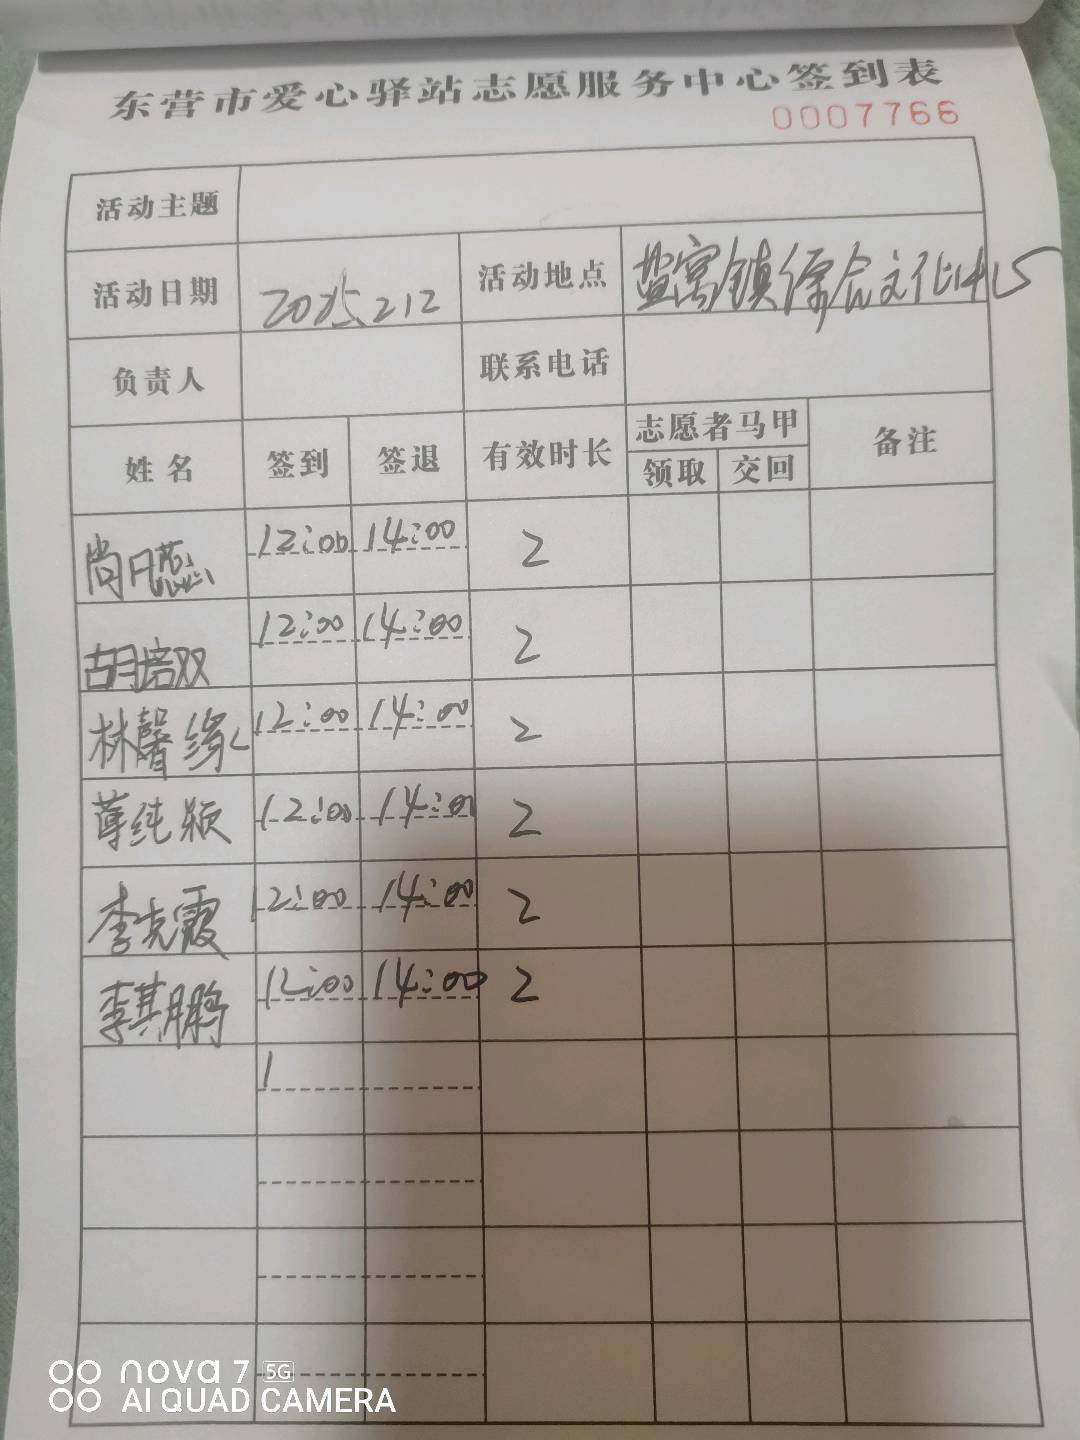 东营市爱心驿站志愿服务中心签到表
0007766
活动主题
活动日期 2025.2.12 活动地点 盐窝镇综合文化中心
负责人 联系电话
姓名 签到 签退 有效时长 志愿者马甲 备注
领取 交回
尚凡蕊 12:00 14:00 2
胡培双 12:00 14:00 2
林馨缘 12:00 14:00 2
薄纯颖 12:00 14:00 2
李克霞 12:00 14:00 2
李其鹏 12:00 14:00 2
1
nova 7 5G
AI QUAD CAMERA